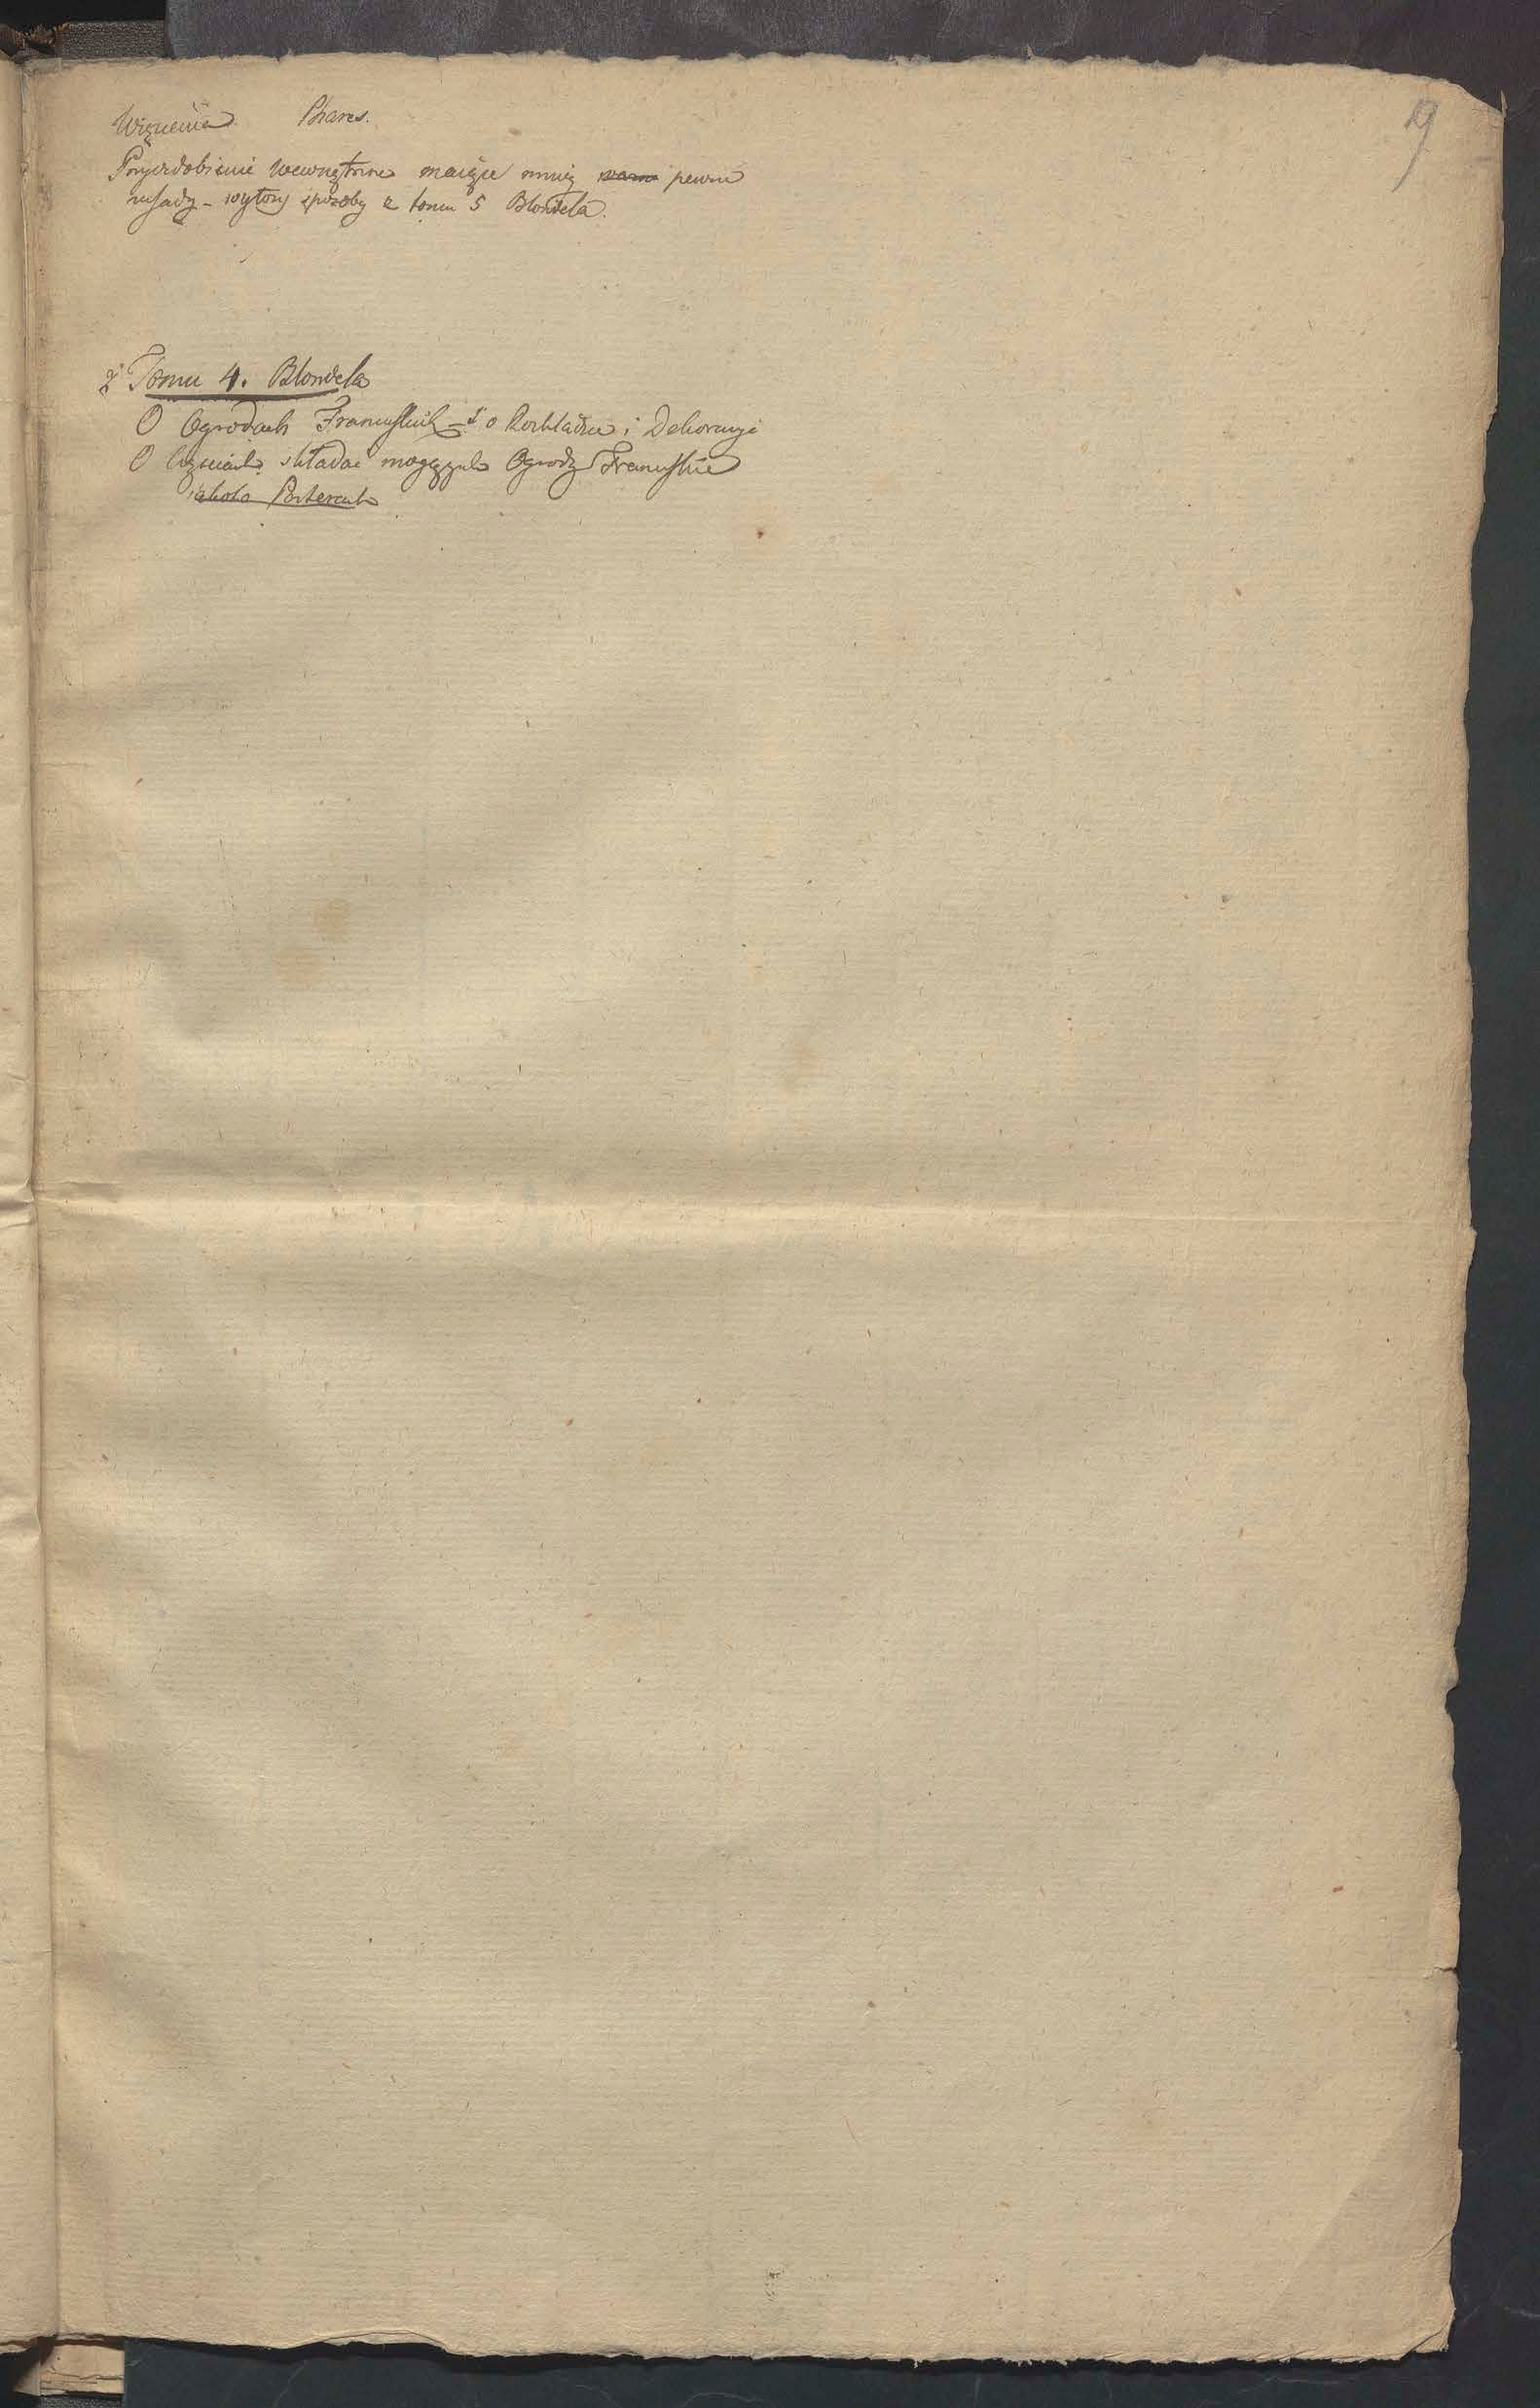 19
Więzienia Phares.
Przyozdobienie wewnętrzne maiące mniey pewne
zasady - wytoż sposoby z tomu 5 Blondela.
z Tomu 4. Blondela
O Ogrodach Francuskich - o Rozkładzie i Dekoracyi
O Częściach składać mogących Ogrody Francuskie
iakoto Parterach